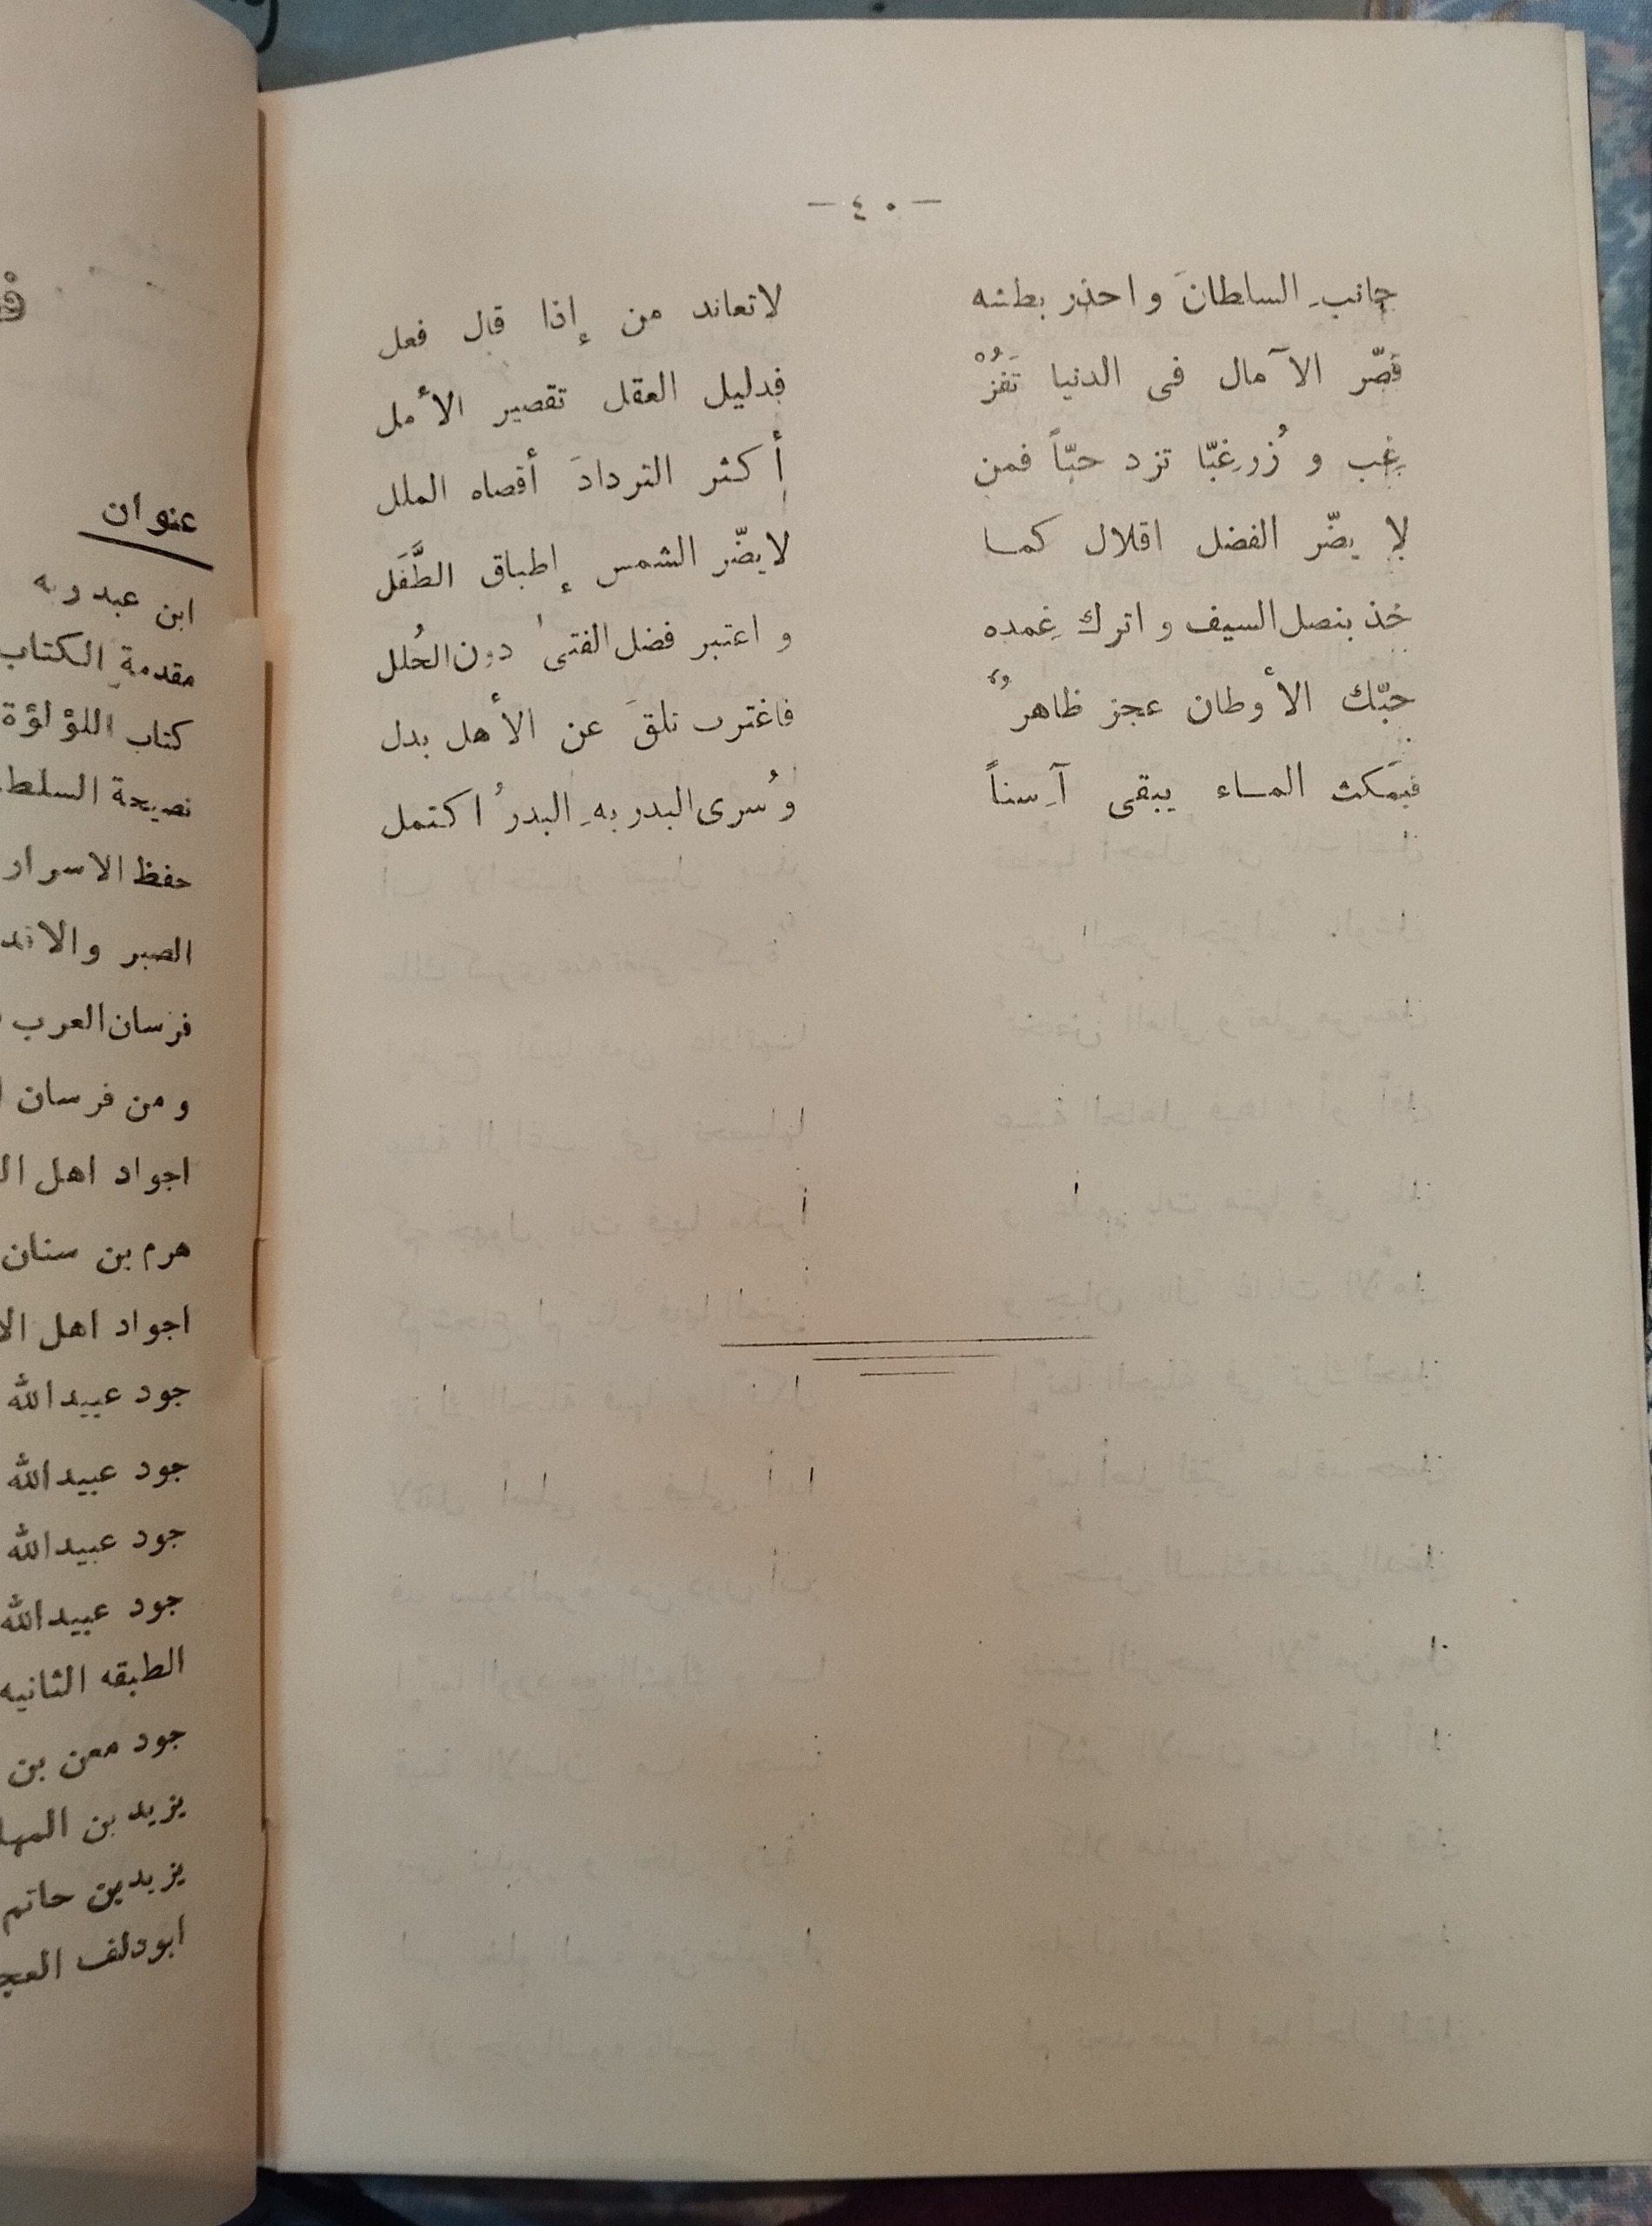 — ٤٠ —
جانبِ السلطانَ و احذر بطشه لاتعاند من إذا قال فعل
قصّر الآمال فى الدنيا تَفُزْ فدليل العقل تقصير الأمل
غِب و زُر غِبّا تزد حبّاً فمن أكثر التردادَ أقصاه الملل
لا يضّر الفضل اقلال كما لايضّر الشمس إطباق الطَّفَل
خذ بنصل السيف و اترك غِمده و اعتبر فضل الفتى دون الحُلل
حبّك الأوطان عجز ظاهرٌ فاغترب تلقَ عن الأهل بدل
فبمَكث الماء يبقى آسِناً و سُرى البدر بهِ البدرُ اكتمل
عنوان
ابن عبد ربه
مقدمة الكتاب
كتاب اللؤلؤة
نصيحة السلط
حفظ الاسرار
الصبر والاقد
فرسان العرب
و من فرسان
اجواد اهل ال
هرم بن سنان
اجواد اهل الا
جود عبيدالله
جود عبيدالله
جود عبيدالله
جود عبيدالله
الطبقه الثانيه
جود معن بن
يزيد بن المها
يزيدبن حاتم
ابودلف العج